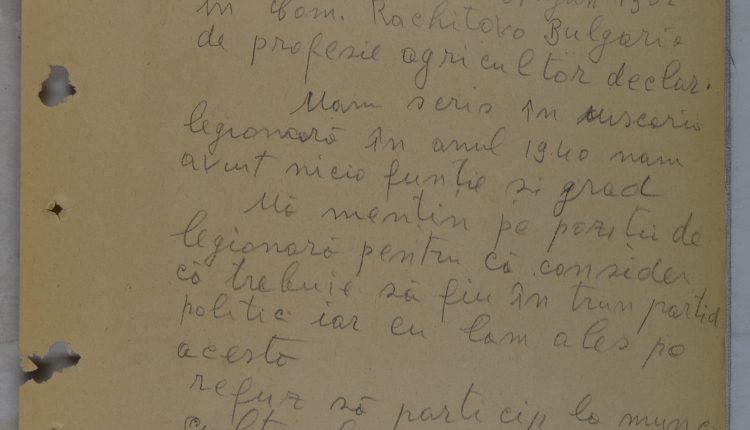 în Com. Rachitovo Bulgaria
de profesie agricultor declar.
Mam scris în miscaria
legionară în anul 1940 nam
avut nicio funție si grad
Mă mențin pe poziția de
legionară pentru că consider
că trebuie să fiu în trun partid
politic iar eu lam ales pe
acesta
refuz să particip la munca